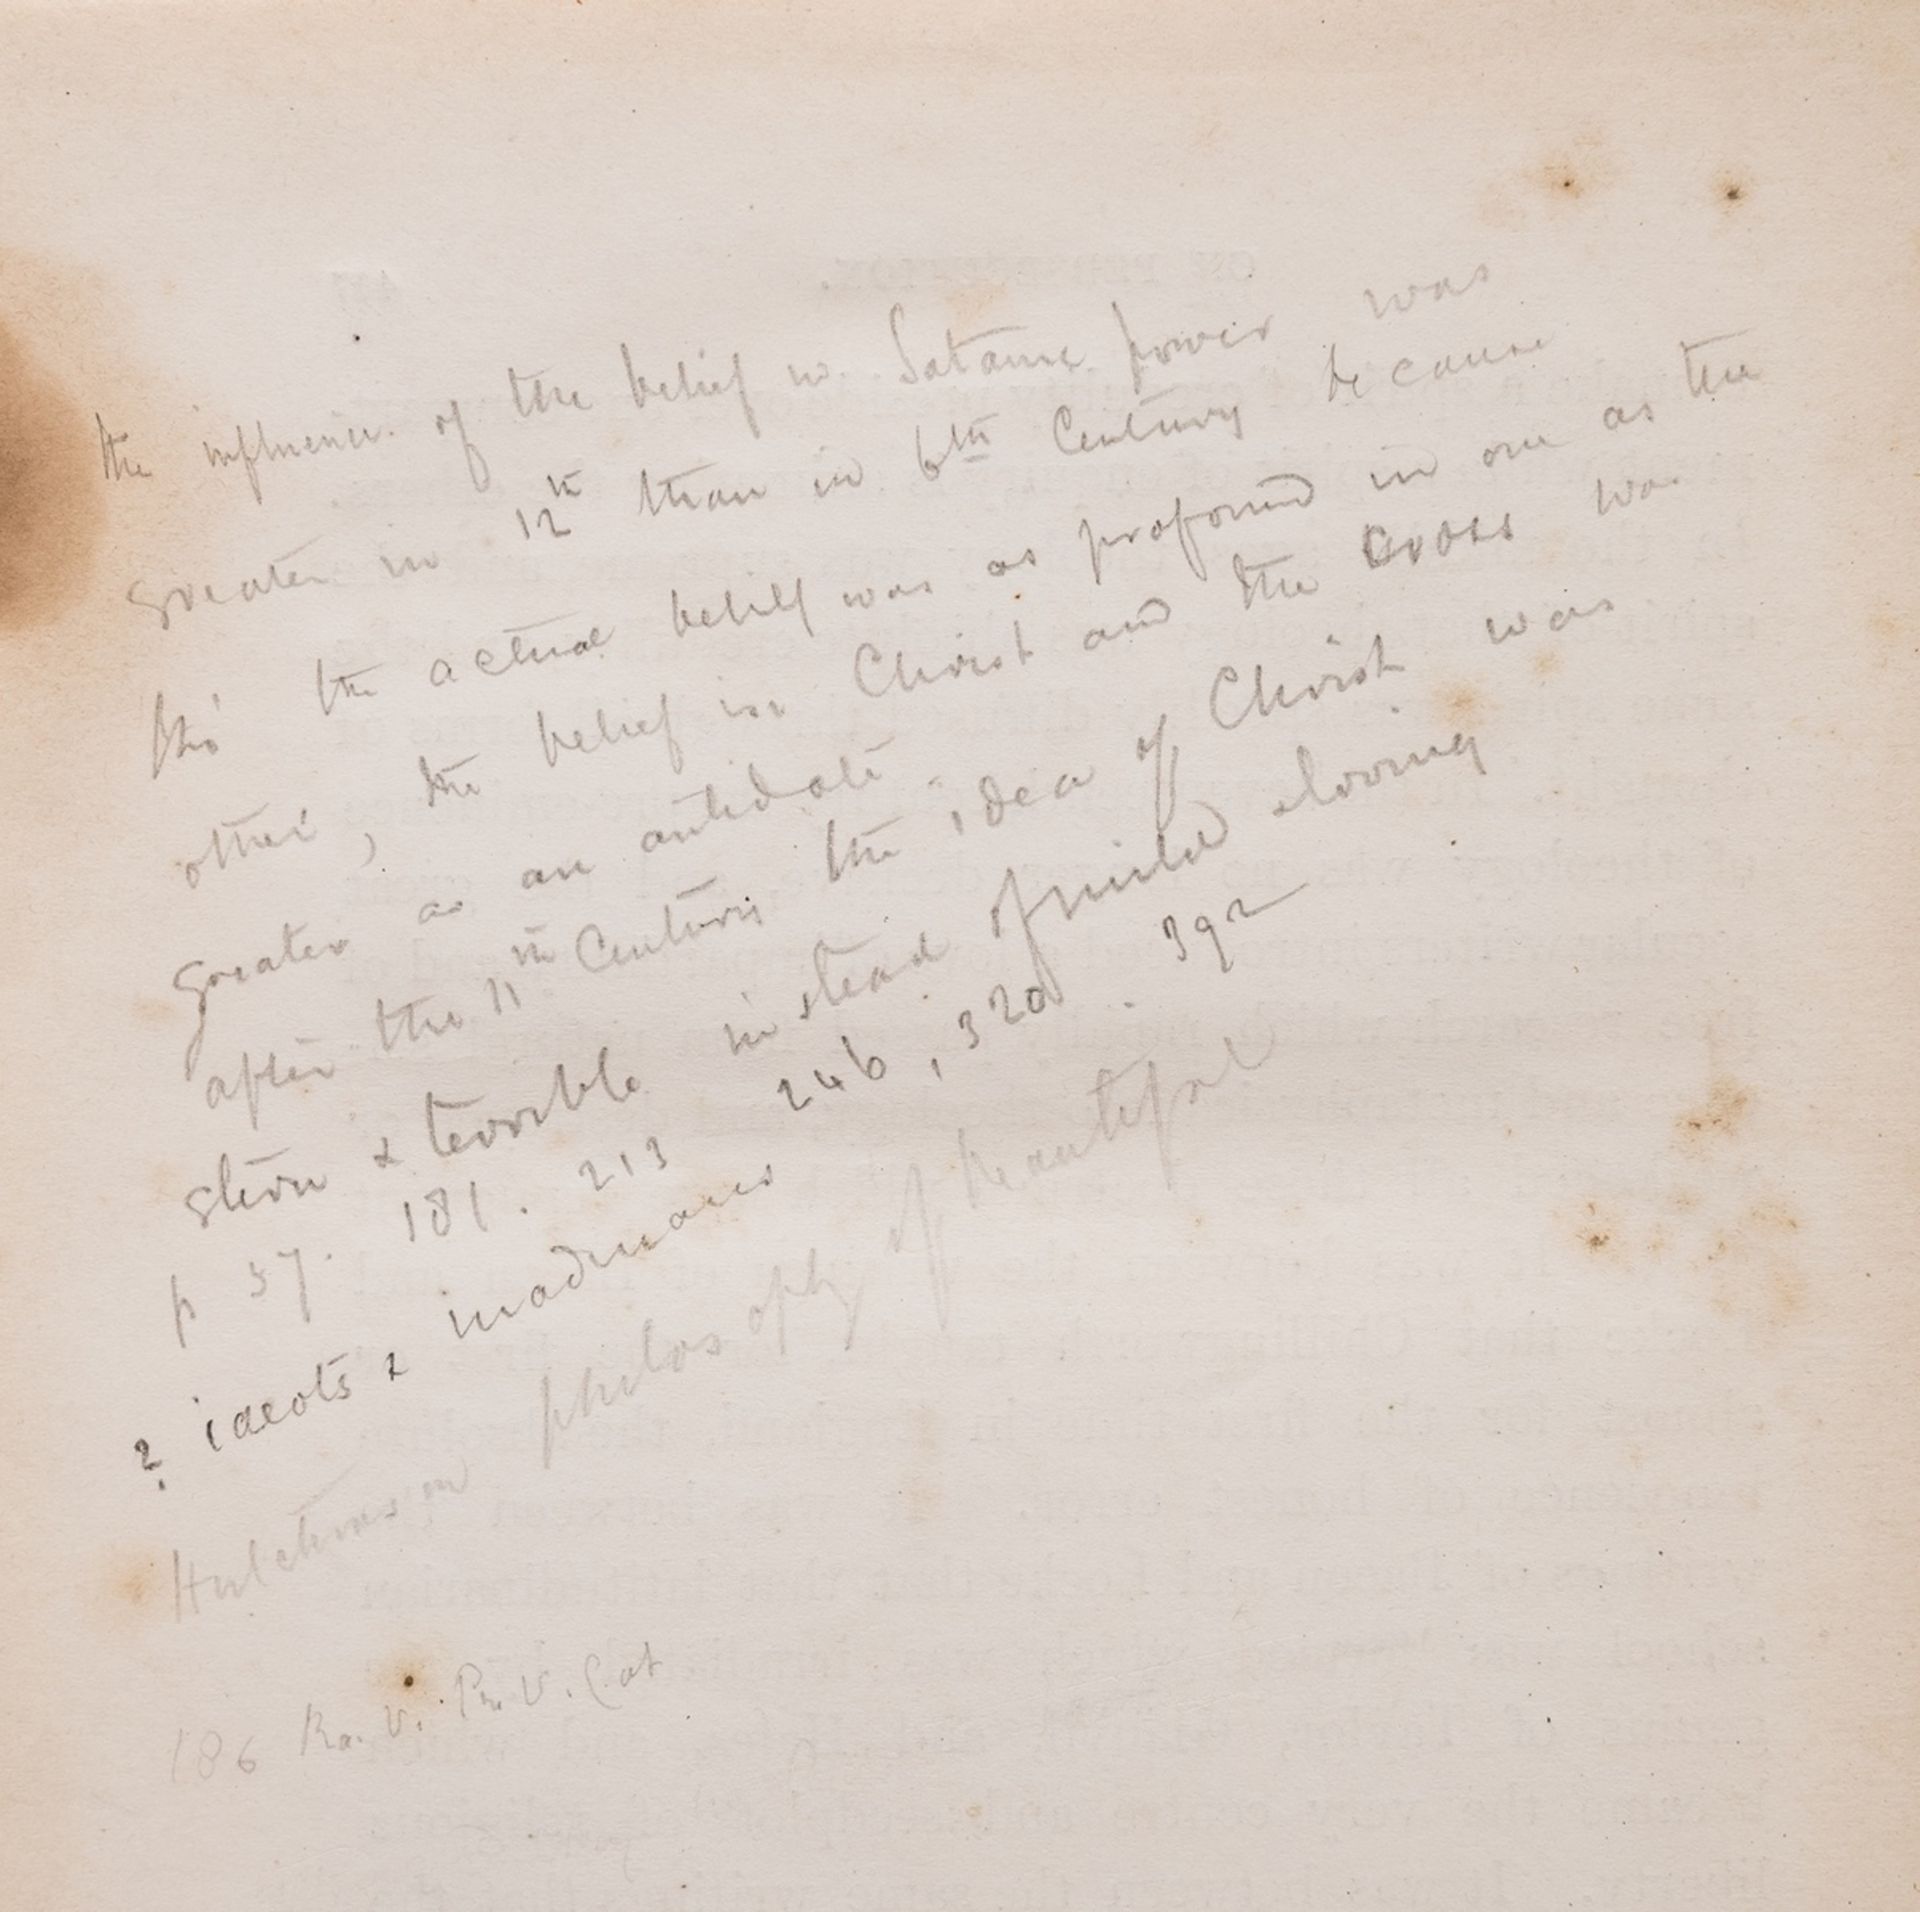 the influence of the belief in Satanic power was
greater in 12th than in 6th Century because
tho' the actual belief was as profound in one as the
other, the belief in Christ and the Cross was
greater as an antidote.
after the 11th Century the idea of Christ was
stern & terrible instead of mild & loving
p 37. 181. 213 246, 320. 392
? ideots & madmans
Hutchinson philosophy of beautiful
186 Ra. V. Pr. V. Cat